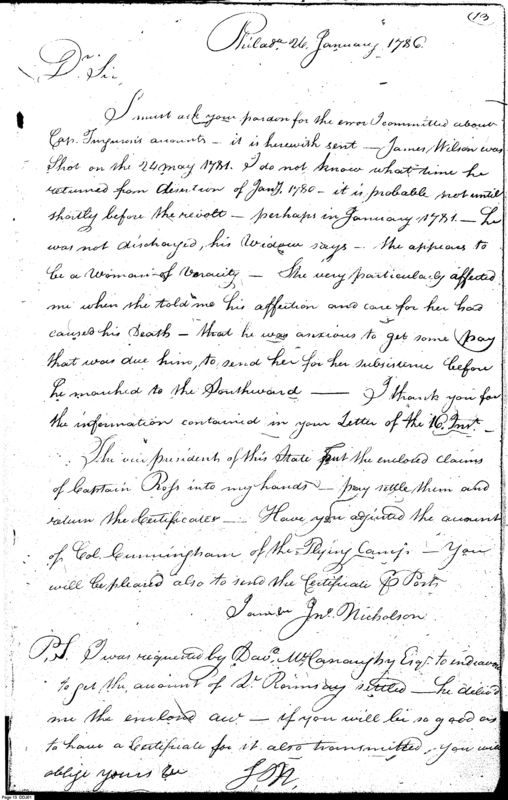 13
Philada. 26 January 1786
Dr. Sir,
I must ask your pardon for the error I committed about
Cap. accounts - it is herewith sent - James Wilson was
Shot on the 24 may 1781. I do not know what time he
returned from desertion of Jany. 1780 - it is probable not until
shortly before the revolt - perhaps in January 1781 - he
was not discharged, his Widow says - she appears to
be a Woman of Veracity - She very particularly affected
me when she told me his affection and care for her had
caused his Death - that he was anxious to get some pay
that was due him, to send her for her subsistence before
he marched to the Southward - I thank you for
the information contained in your Letter of the 16. Inst. -
The vice president of this State put the enclosed claims
of Captain Ross into my hands - pray settle them and
return the Certificates - Have you adjusted the account
of Col. Cunningham of the Flying Camp - You
will be pleased also to send the Certificate Post
I am &c Jno. Nicholson
P.S. I was requested by Davd. McCanaughy Esqr. to endeavor
to get the account of Dr. settled - he delivd
me the enclosed acct - if you will be so good as
to have a Certificate for it also transmitted, you will
oblige yours &c J.N.
Page 13